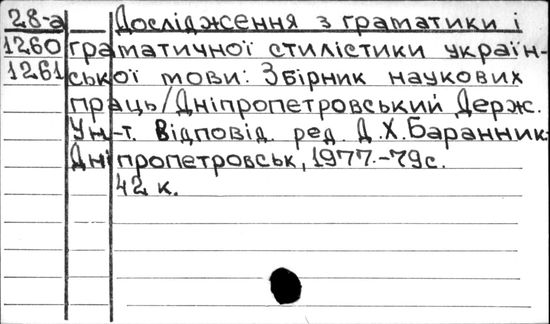 28-а Дослідження з граматики і
1260 граматичної стилістики україн-
1261 ської мови: Збірник наукових
праць/Дніпропетровський Держ.
Ун-т. Відповід. ред. Д.Х.Баранник.
Дніпропетровськ, 1977.-79с.
42 к.